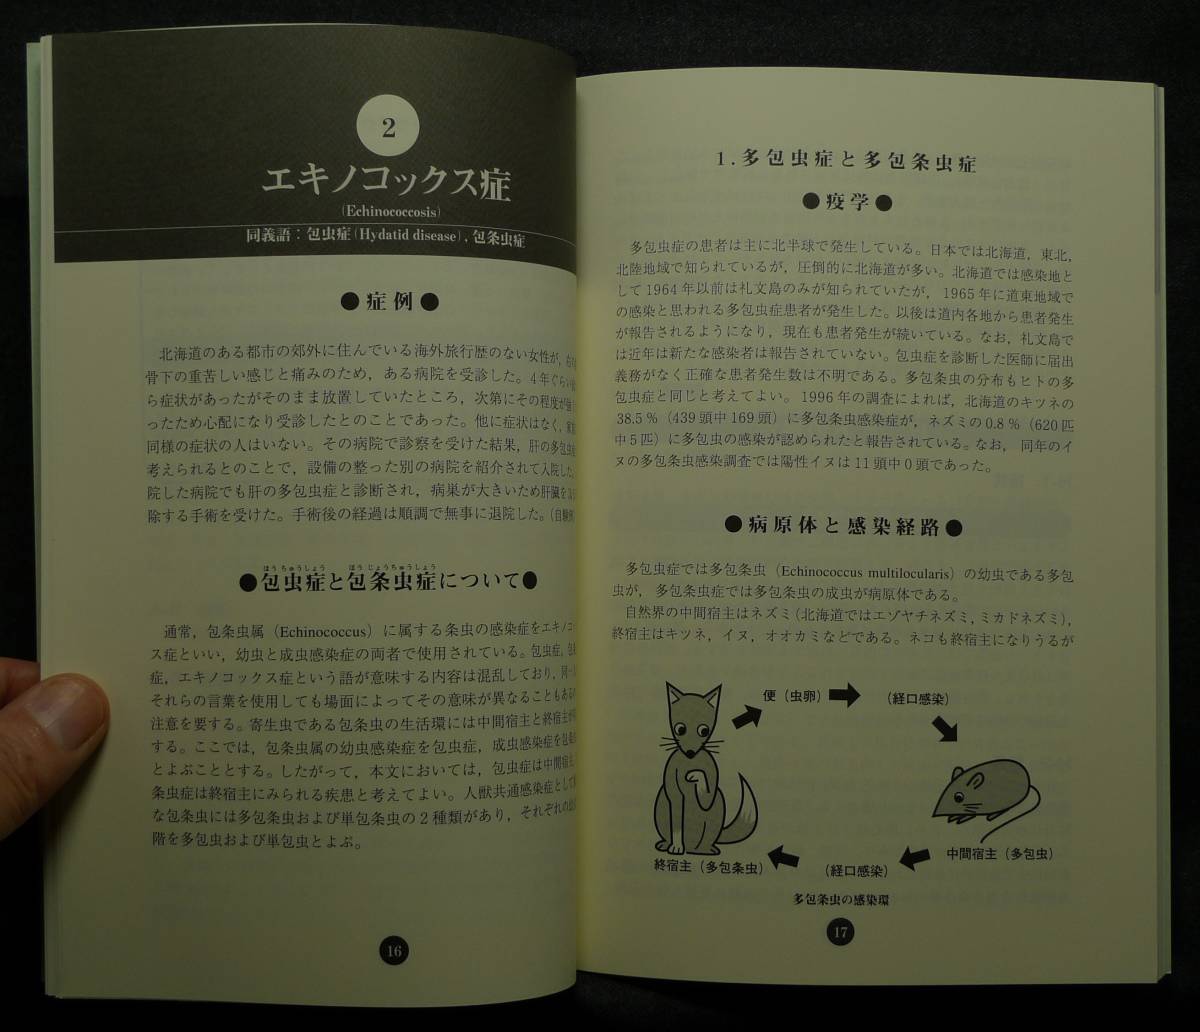 2
エキノコックス症
(Echinococcosis)
同義語:包虫症(Hydatid disease),包条虫症
●症例●
北海道のある都市の郊外に住んでいる海外旅行歴のない女性が,右
骨下の重苦しい感じと痛みのため,ある病院を受診した。4年ぐらい
ら症状があったがそのまま放置していたところ,次第にその程度が強
ったため心配になり受診したとのことであった。他に症状はなく,家
同様の症状の人はいない。その病院で診察を受けた結果,肝の多包虫
考えられるとのことで,設備の整った別の病院を紹介されて入院した。
院した病院でも肝の多包虫症と診断され,病巣が大きいため肝臓を
除する手術を受けた。手術後の経過は順調で無事に退院した。(自験例)
ほうちゅうしょう ほうじょうちゅうしょう
●包虫症と包条虫症について●
通常,包条虫属(Echinococcus)に属する条虫の感染症をエキノコ
ス症といい,幼虫と成虫感染症の両者で使用されている。包虫症,包
症,エキノコックス症という語が意味する内容は混乱しており,同一
それらの言葉を使用しても場面によってその意味が異なることもあるの
注意を要する。寄生虫である包条虫の生活環には中間宿主と終宿主が
する。ここでは,包条虫属の幼虫感染症を包虫症,成虫感染症を包条
とよぶこととする。したがって,本文においては,包虫症は中間宿主,
条虫症は終宿主にみられる疾患と考えてよい。人獣共通感染症として
な包条虫には多包条虫および単包条虫の2種類があり,それぞれの
階を多包虫および単包虫とよぶ。
16
1.多包虫症と多包条虫症
●疫学●
多包虫症の患者は主に北半球で発生している。日本では北海道,東北,
北陸地域で知られているが,圧倒的に北海道が多い。北海道では感染地と
して1964年以前は礼文島のみが知られていたが,1965年に道東地域で
の感染と思われる多包虫症患者が発生した。以後は道内各地から患者発生
が報告されるようになり,現在も患者発生が続いている。なお,礼文島で
は近年は新たな感染者は報告されていない。包虫症を診断した医師に届出
義務がなく正確な患者発生数は不明である。多包条虫の分布もヒトの多
包虫症と同じと考えてよい。1996年の調査によれば,北海道のキツネの
38.5%(439頭中169頭)に多包条虫感染症が,ネズミの0.8%(620匹
中5匹)に多包虫の感染が認められたと報告されている。なお,同年のイ
ヌの多包条虫感染調査では陽性イヌは11頭中0頭であった。
●病原体と感染経路●
多包虫症では多包条虫(Echinococcus multilocularis)の幼虫である多包
虫が,多包条虫症では多包条虫の成虫が病原体である。
自然界の中間宿主はネズミ(北海道ではエゾヤチネズミ,ミカドネズミ),
終宿主はキツネ,イヌ,オオカミなどである。ネコも終宿主になりうるが
便(虫卵)
(経口感染)
中間宿主(多包虫)
(経口感染)
終宿主(多包条虫)
多包条虫の感染環
17